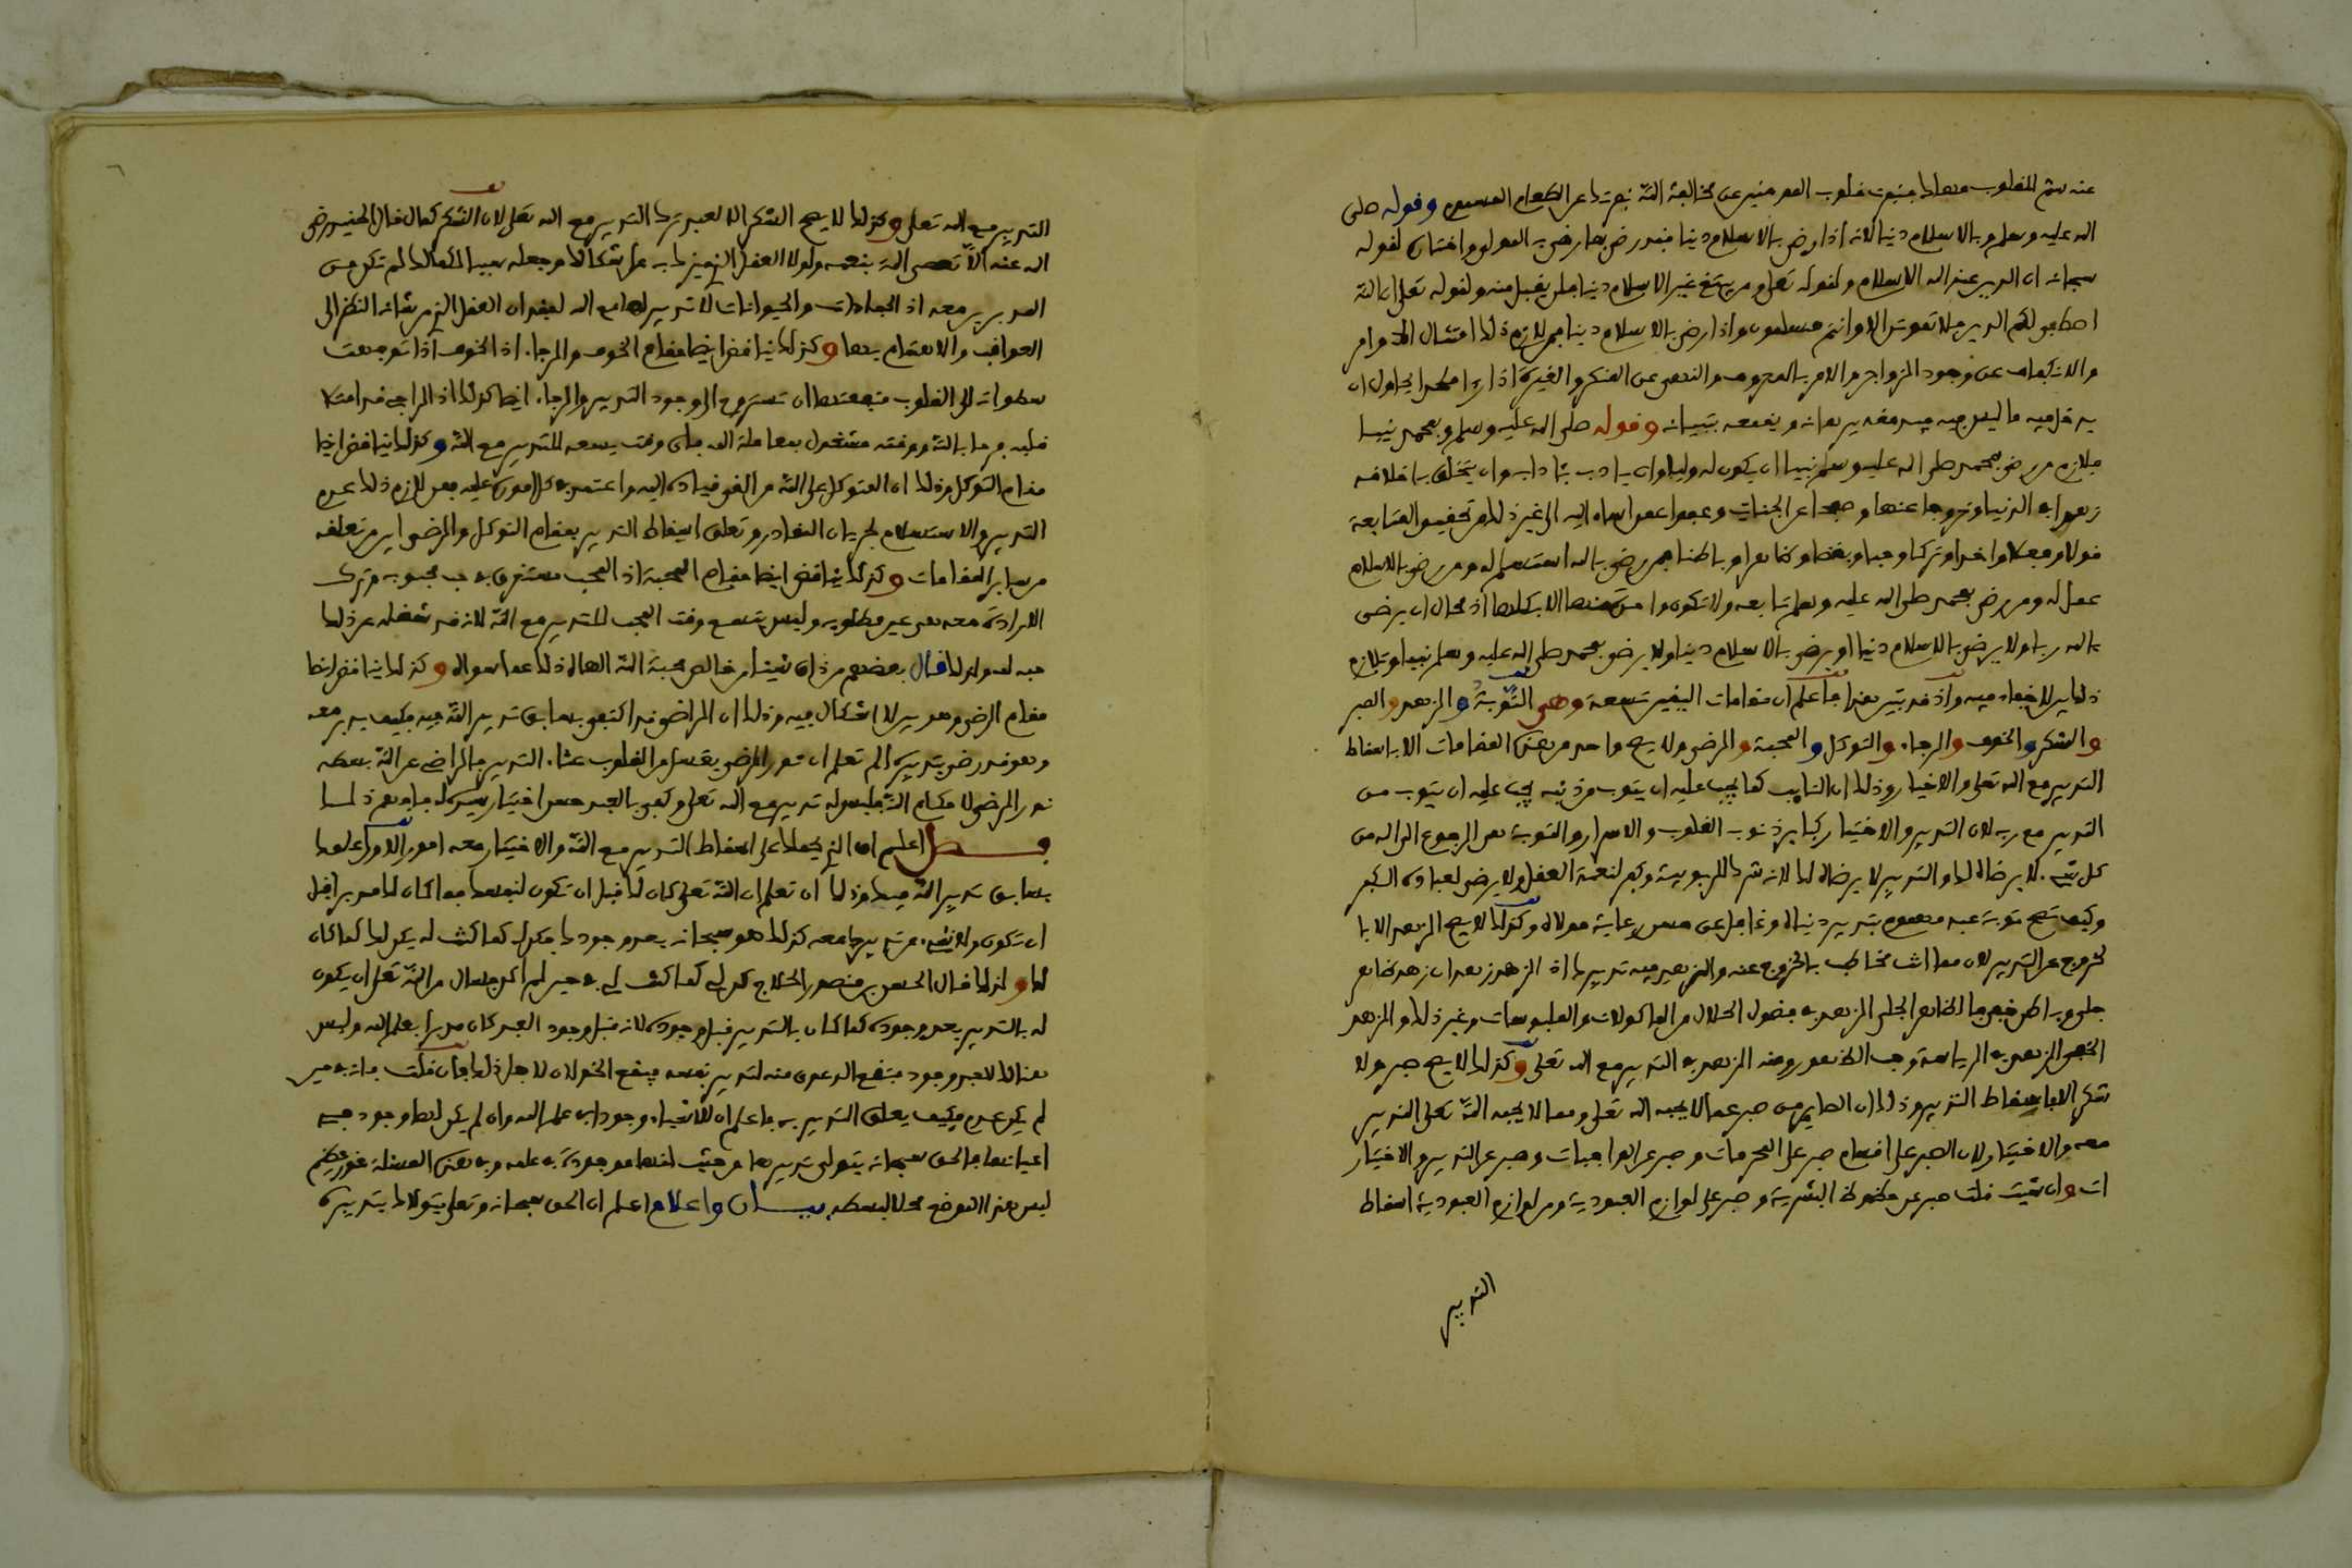 عنه سم للقلوب مهلك فنبوت قلوب المومنين عن مخالفة الله نبوتك عن الطعام المسموم وقوله صلى
الله عليه وسلم وبالاسلام دينا لانه اذا رضي بالاسلام دينا فقد رضي بما رضي به المولى واختاره لقوله
سبحانه ان الدين عند الله الاسلام ولقوله تعلى ومن يبتغ غير الاسلام دينا فلن يقبل منه ولقوله تعلى ان الله
اصطفى لكم الدين فلا تموتن الا وانتم مسلمون واذا رضي بالاسلام دينا فمن لازم ذلك امتثال الاوامر
والانكفاف عن وجود الزواجر والامر بالمعروف والنهي عن المنكر والغيرة اذا رءا ملحدا يحاول ان
يدخل فيه ما ليس فيه فيدمغه ببرهانه ويقمعه بتبيانه وقوله صلى الله عليه وسلم وبمحمد نبيا
فلازم من رضي بمحمد صلى الله عليه وسلم نبيا ان يكون له وليا وان يتادب بئادابه وان يتخلق باخلاقه
زهدا في الدنيا وخروجا عنها وصفحا عن الجناية وعفوا عمن اساء اليه الى غير ذلك من تحقيق المتابعة
قولا وفعلا واخذا وتركا وحبا وبغضا وظاهرا وباطنا فمن رضي بالله استسلم له ومن رضي بالاسلام
عمل له ومن رضي بمحمد صلى الله عليه وسلم تابعه ولا تكون واحدة منها الا بكلها اذ محال ان يرضى
بالله ربا ولا يرضى بالاسلام دينا او يرضى بالاسلام دينا ولا يرضى بمحمد صلى الله عليه وسلم نبيا وتلازم
ذلك بين لا خفاء فيه واذ قد تبين هذا فاعلم ان مقامات اليقين تسعة وهي التوبة والزهد والصبر
والشكر والخوف والرجاء والتوكل والمحبة والرضى ولا يصح واحد من هذه المقامات الا باسقاط
التدبير مع الله تعلى والاختيار وذلك ان التايب كما يجب عليه ان يتوب من ذنبه يجب عليه ان يتوب من
التدبير مع ربه لان التدبير والاختيار كباير ذنوب القلوب والاسرار والتوبة هي الرجوع الى الله من
كل شيء لا يرضاه لك والتدبير لا يرضاه لك لانه شرك بالربوبية وكفر لنعمة العقل ولا يرضى لعباده الكفر
وكيف تصح توبة عبد مهموم بتدبير دنياه وغافل عن حسن رعاية مولاه وكذلك لا يصح الزهد الا با
لخروج عن التدبير لان مما انت مخاطب بالخروج عنه والزهد فيه تدبيرك اذ الزهد زهدان زهد ظاهر
جلي وباطن خفي فالظاهر الجلي الزهد في فضول الحلال من الماكولات والملبوسات وغير ذلك والزهد
الخفي الزهد في الرياسة وحب الظهور ومنه الزهد في التدبير مع الله تعلى وكذلك لا يصح صبر ولا
شكر الا باسقاط التدبير وذلك ان الصابر من صبر عما لا يحبه الله تعلى ومما لا يحبه الله تعلى التدبير
معه والاختيار ولان الصبر على اقسام صبر على المحرمات وصبر عن الواجبات وصبر عن التدبير والاختيار
ات وان شيت قلت صبر عن حظوظ البشرية وصبر على لوازم العبودية ومن لوازم العبودية اسقاط
التدبير
التدبير مع الله تعلى وكذلك لا يصح الشكر الا لعبد ترك التدبير مع الله تعلى لان الشكر كما قال الجنيد رضي
الله عنه الا تعصي الله بنعمه ولولا العقل الذي ميزك به على اشكالك وجعله سببا لكمالك لم تكن من
المدبرين معه اذ الجمادات والحيوانات لا تدبير لها مع الله لفقدان العقل الذي من شانه النظر الى
العواقب والاهتمام بها وكذلك يناقض ايضا مقام الخوف والرجاء اذ الخوف اذا توجهت
سطواته الى القلوب منعتها ان تستروح الى وجود التدبير والرجاء ايضا كذلك اذ الراجي قد امتلا
قلبه فرحا بالله ووقته مشغول بمعاملة الله فاي وقت يسعه للتدبير مع الله وكذلك يناقض ايضا
مقام التوكل وذلك ان المتوكل على الله من القى قياده اليه واعتمد في كل اموره عليه فمن لازم ذلك عدم
التدبير والاستسلام لجريان المقادر وتعلق اسقاط التدبير بمقام التوكل والرضى ابين من تعلقه
من ساير المقامات وكذلك يناقض ايضا مقام المحبة اذ المحب مستغرق في حب محبوبه وترك
الارادة معه هي عين مطلوبه وليس يتسع وقت المحب للتدبير مع الله لانه قد شغله عن ذلك
حبه لله ولذلك قال بعضهم من ذاق شيئا من خالص محبة الله الهاه ذلك عما سواه وكذلك يناقض ايضا
مقام الرضى وهو بين لا اشكال فيه وذلك ان الراضي قد اكتفى بسابق تدبير الله فيه فكيف يدبر معه
وهو قد رضي بتدبيره الم تعلم ان نور الرضى يغسل من القلوب غثاء التدبير فالراضي عن الله بسطه
نور الرضى لاحكام الله فليس له تدبير مع الله تعلى وكفى بالعبد حسن اختيار سيده له فافهم ذلك
فصل اعلم ان الذي يحملك على اسقاط التدبير مع الله والاختيار معه امور الاول علمك
بسابق تدبير الله فيك وذلك ان تعلم ان الله تعلى كان لك قبل ان تكون لنفسك فكما كان لك مدبرا قبل
ان تكون ولا شيء من تدبيرك معه كذلك هو سبحانه بعد وجودك فكن له كما كنت له يكن لك كما كان
لك ولذلك قال الحسين بن منصور الحلاج كن لي كما كنت لي في حين لم اكن فسال من الله تعلى ان يكون
له بالتدبير بعد وجوده كما كان بالتدبير قبل وجوده لانه قبل وجود العبد كان مدبرا بعلم الله وليس
هنالك للعبد وجود فتقع الدعوى منه لتدبير نفسه فيقع الخذلان لاجل ذلك فان قلت فانه حين
لم يكن عدم فكيف يتعلق التدبير به فاعلم ان للاشياء وجودا في علم الله وان لم يكن لها وجود في
اعيانها فالحق سبحانه يتولى تدبيرها من حيث انها موجودة في علمه وفي هذه المسئلة غور عظيم
ليس هذا الموضع محلا لبسطه بيان واعلام اعلم ان الحق سبحانه وتعلى يتولاك بتدبيره